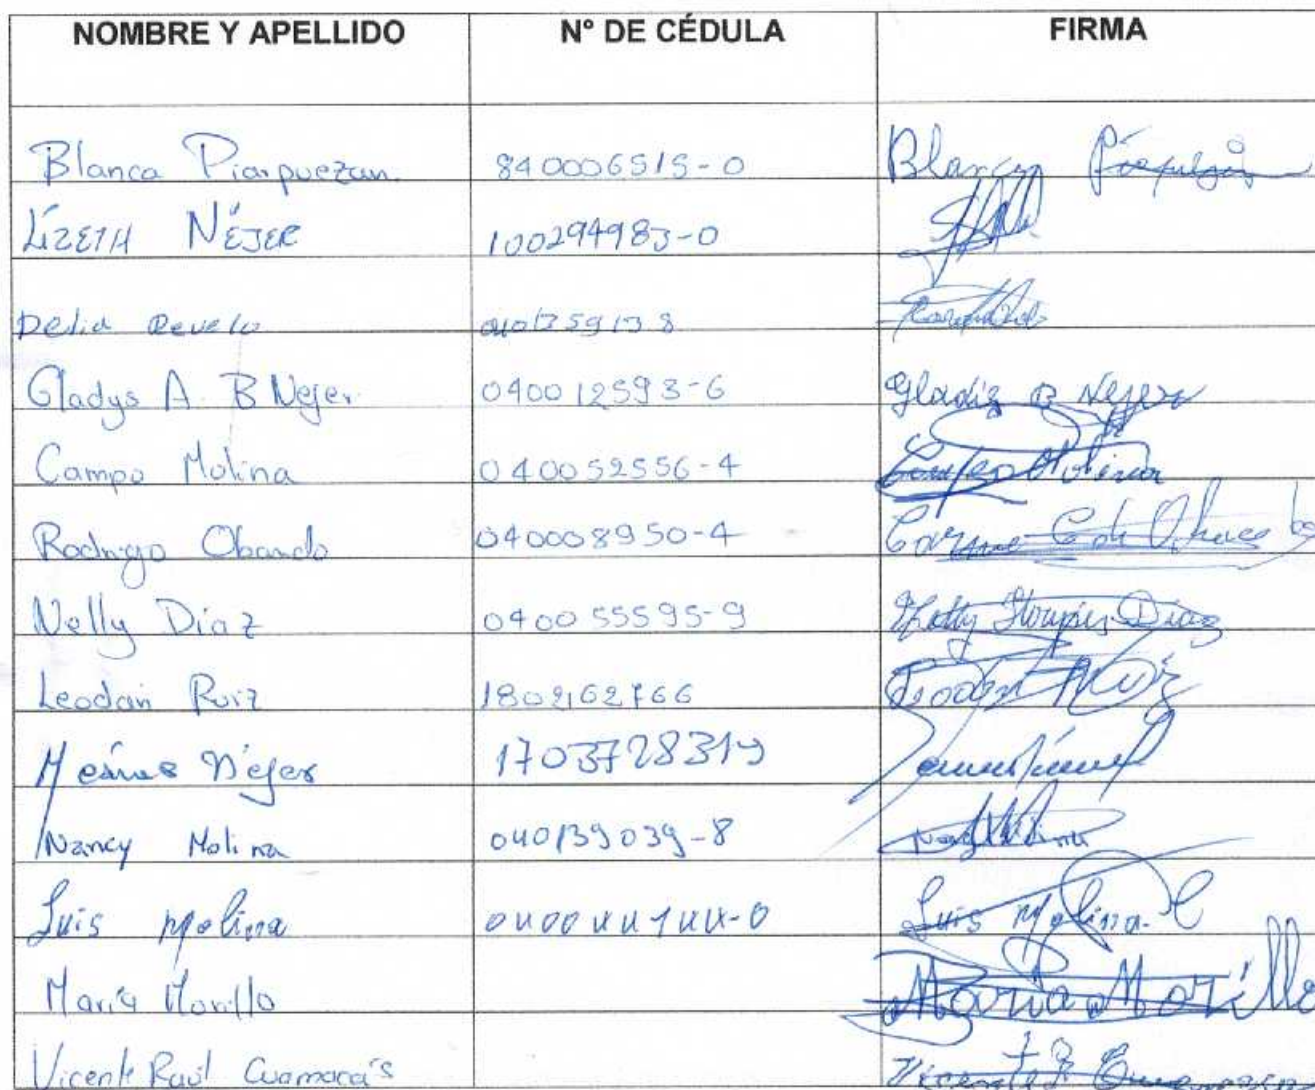 NOMBRE Y APELLIDO N° DE CÉDULA FIRMA
Blanca Piarpuezan 840006515-0 Blanca
LIZETH NÉJER 100294983-0
Delia Revelo 040135913 8
Gladys A. B Nejer 040012593-6 Gladiz B Nejer
Campo Molina 040052556-4 Campo Molina
Rodrigo Obando 040008950-4 Carmen C de
Nelly Díaz 040055595-9 Díaz
Leodan Ruiz 1802162766 Leodan Ruiz
Néjer 1703728319
Nancy Molina 040139039-8 Molina
Luis Molina 040044144-0 Luis Molina C
María Morillo María Morillo
Vicente Raúl Cuamacás Vicente R